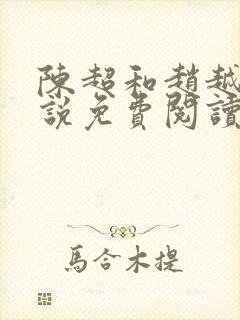 陳超和趙越
說免費閱讀
馬合木提